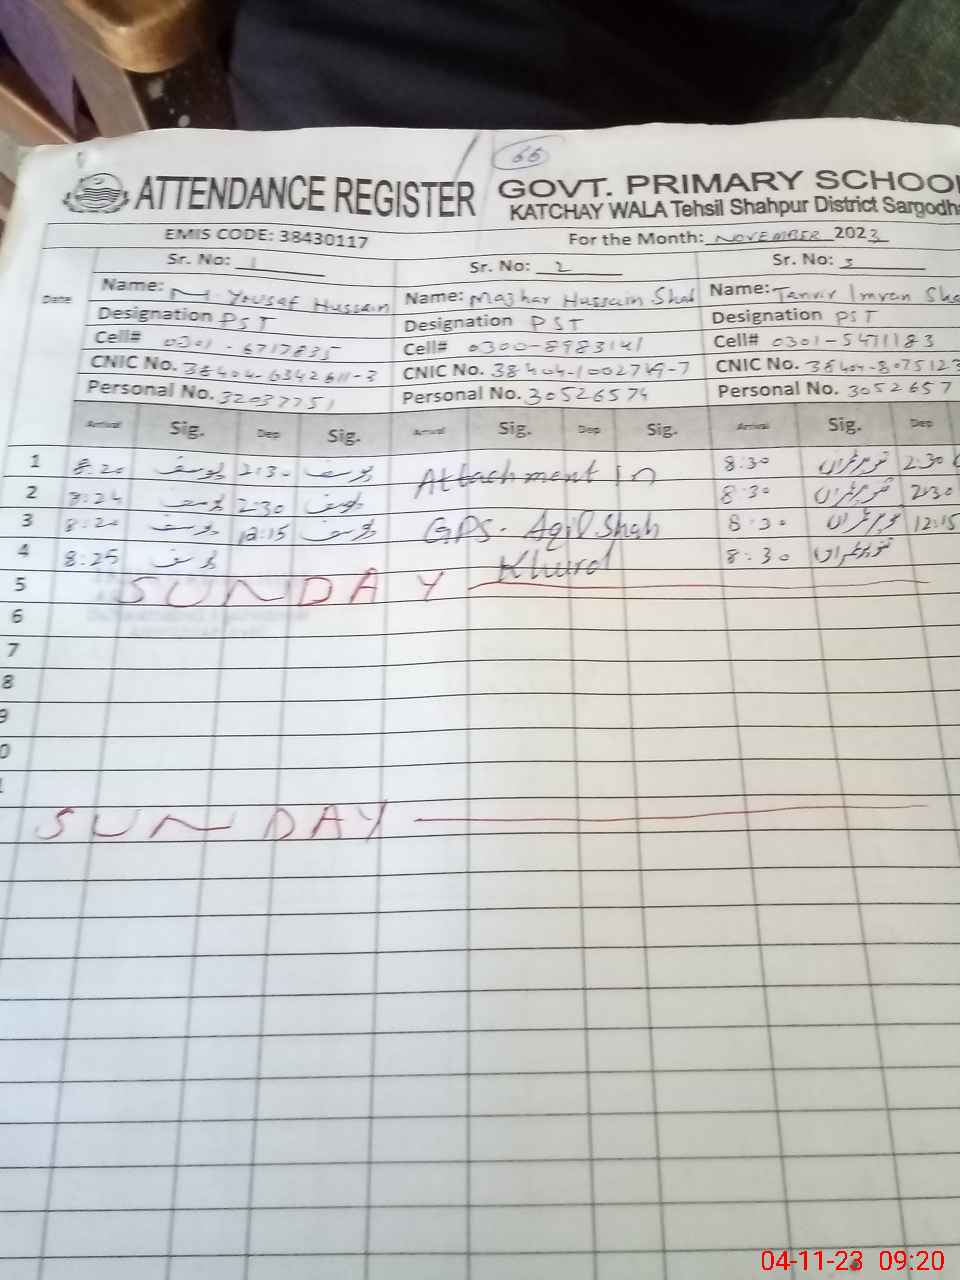 66
ATTENDANCE REGISTER GOVT. PRIMARY SCHOOL
KATCHAY WALA Tehsil Shahpur District Sargodh
EMIS CODE: 38430117 For the Month: NOVEMBER 2023
Sr. No: 1 Sr. No: 2 Sr. No: 3
Date Name: M. Yousaf Hussain Name: Mazhar Hussain Shah Name: Tanvir Imran Sha
Designation PST Designation PST Designation PST
Cell# 0301-6717835 Cell# 0300-8983141 Cell# 0301-5471183
CNIC No. 38404-6342611-3 CNIC No. 38404-1002749-7 CNIC No. 38404-8075123
Personal No. 32037751 Personal No. 30526574 Personal No. 3052657
Arrival Sig. Dep Sig. Arrival Sig. Dep Sig. Arrival Sig. Dep
1 8:20 یوسف 2:30 یوسف Attachment in 8:30 تنویر عمران 2:30
2 8:24 یوسف 2:30 یوسف 8:30 تنویر عمران 2:30
3 8:20 یوسف 12:15 یوسف GPS. Aqil Shah 8:30 تنویر عمران 12:15
4 8:25 یوسف Khurd 8:30 تنویر عمران
5 SUNDAY
6
7
8
9
0
SUNDAY
04-11-23 09:20